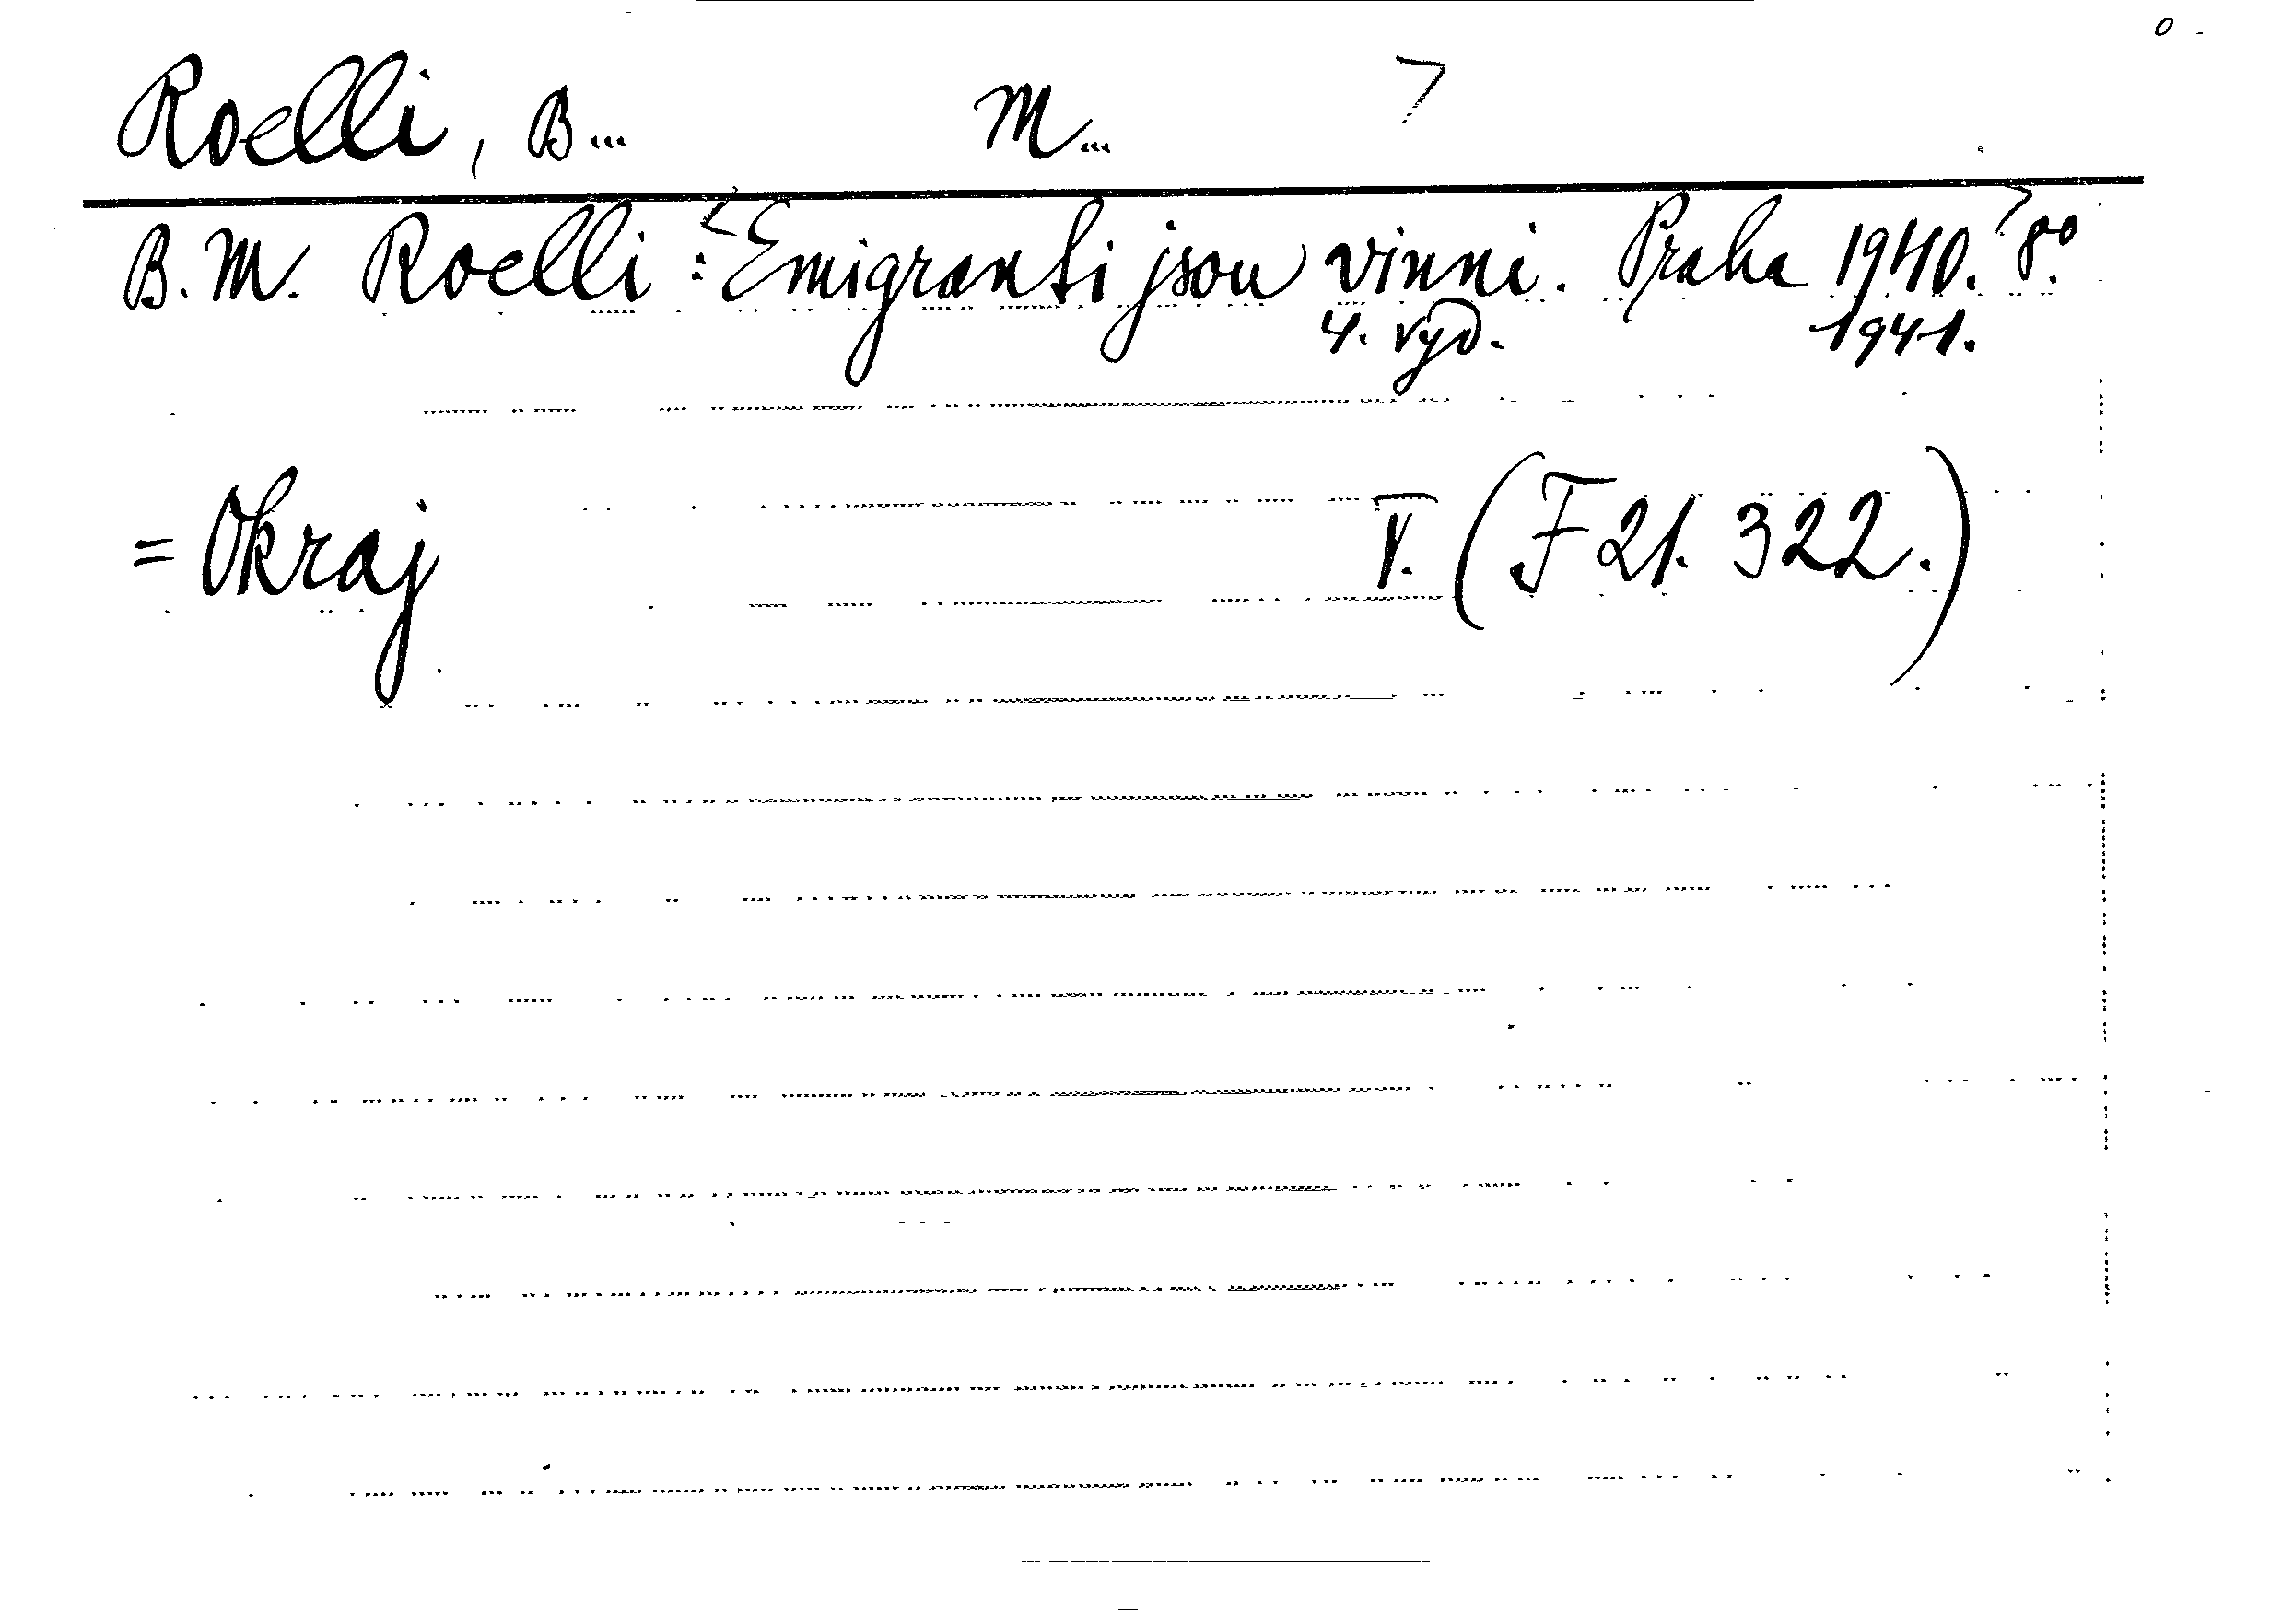 Roelli, B... M...
B. M. Roelli: Emigranti jsou vinni. Praha 1940. 8°.
4. vyd. 1941.
= Okraj V. (F 21. 322.)